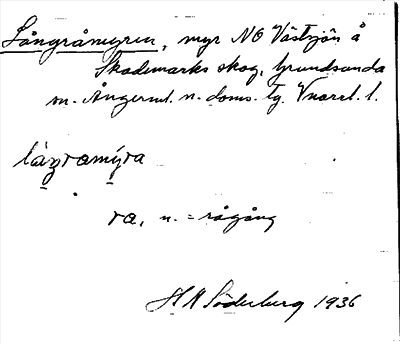 Långråmyren, myr NO Västsjön å
Skademarks skog, Grundsunda
sn. Ångerml. n. doms. tg. Vnorrl. l.
låŋramýra
ra, n. = rågång
H N Söderberg 1936